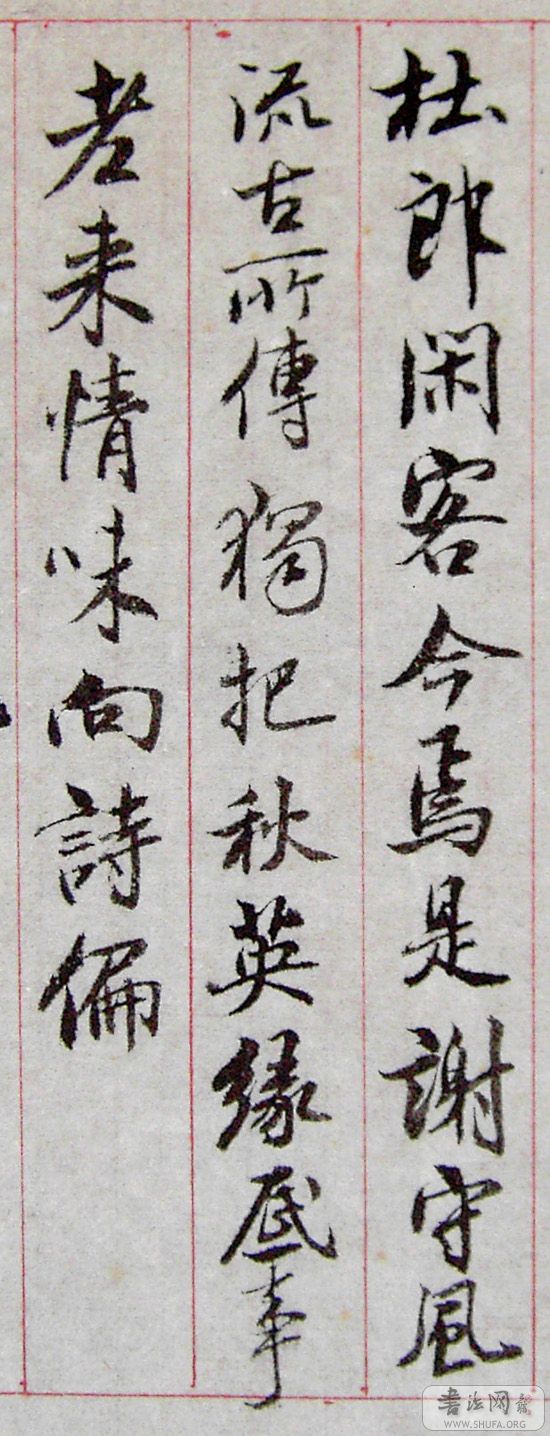 杜郎閑客今焉是謝守風
流古所傳獨把秋英緣底事
老来情味向詩偏
書法网
WWW.SHUFA.ORG